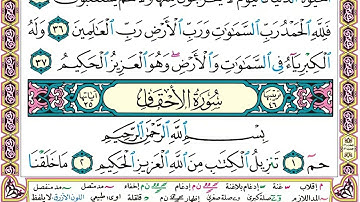 فَلِلَّهِ الْحَمْدُ رَبِّ السَّمَٰوَٰتِ وَرَبِّ الْأَرْضِ رَبِّ الْعَٰلَمِينَ ٣٦ وَلَهُ
الْكِبْرِيَآءُ فِي السَّمَٰوَٰتِ وَالْأَرْضِ وَهُوَ الْعَزِيزُ الْحَكِيمُ ٣٧
سُورَةُ الْأَحْقَافِ
بِسْمِ اللَّهِ الرَّحْمَٰنِ الرَّحِيمِ
حمٓ ١ تَنزِيلُ الْكِتَٰبِ مِنَ اللَّهِ الْعَزِيزِ الْحَكِيمِ ٢ مَا خَلَقْنَا